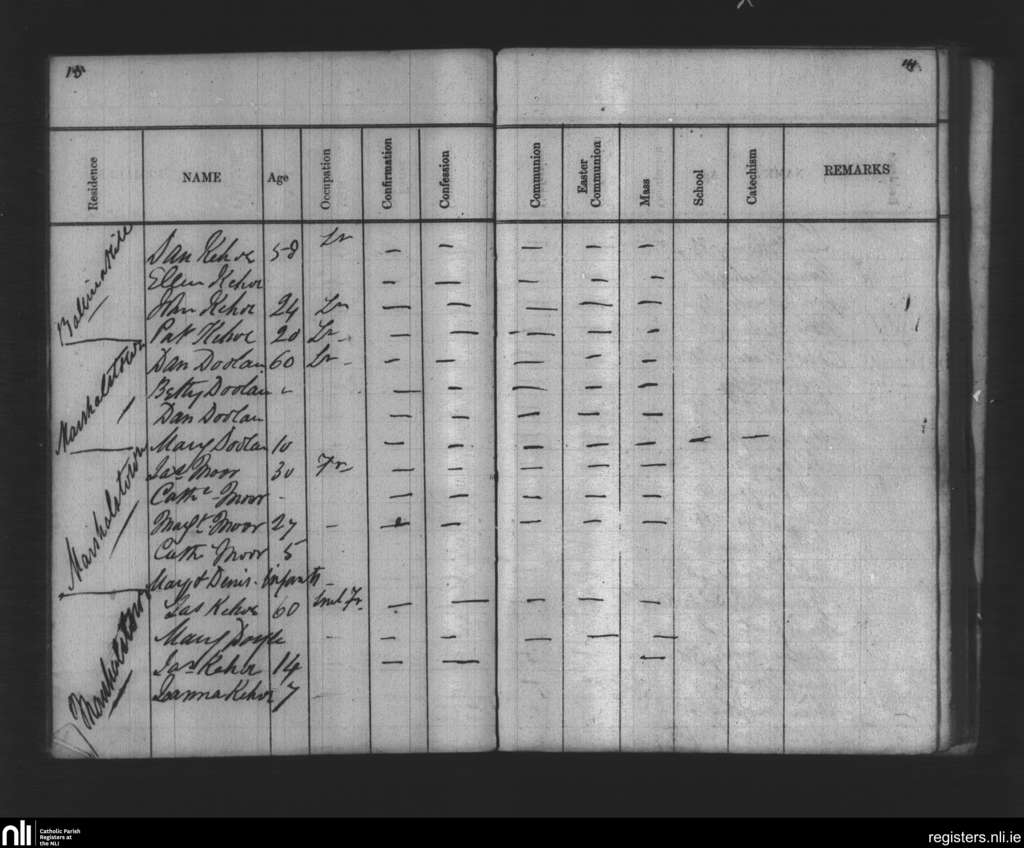 13
13
Residence NAME Age Occupation Confirmation Confession Communion Easter Communion Mass School Catechism REMARKS
Dan Kehoe 58 Lr
Ellen Kehoe
John Kehoe 24 Lr
Pat Kehoe 20 Lr
Marshalstown
Dan Doolan 60 Lr
Betty Doolan
Dan Doolan
Mary Doolan 10
Marshalstown
Jas Moor 30 Fr
Cathe Moor
Margt Moor 27
Cathe Moor 5
Mary & Denis Infants
Marshalstown
Jas Kehoe 60 Fr
Mary Doyle
Jas Kehoe 14
Joanna Kehoe 7
nli Catholic Parish
Registers at
the NLI
registers.nli.ie